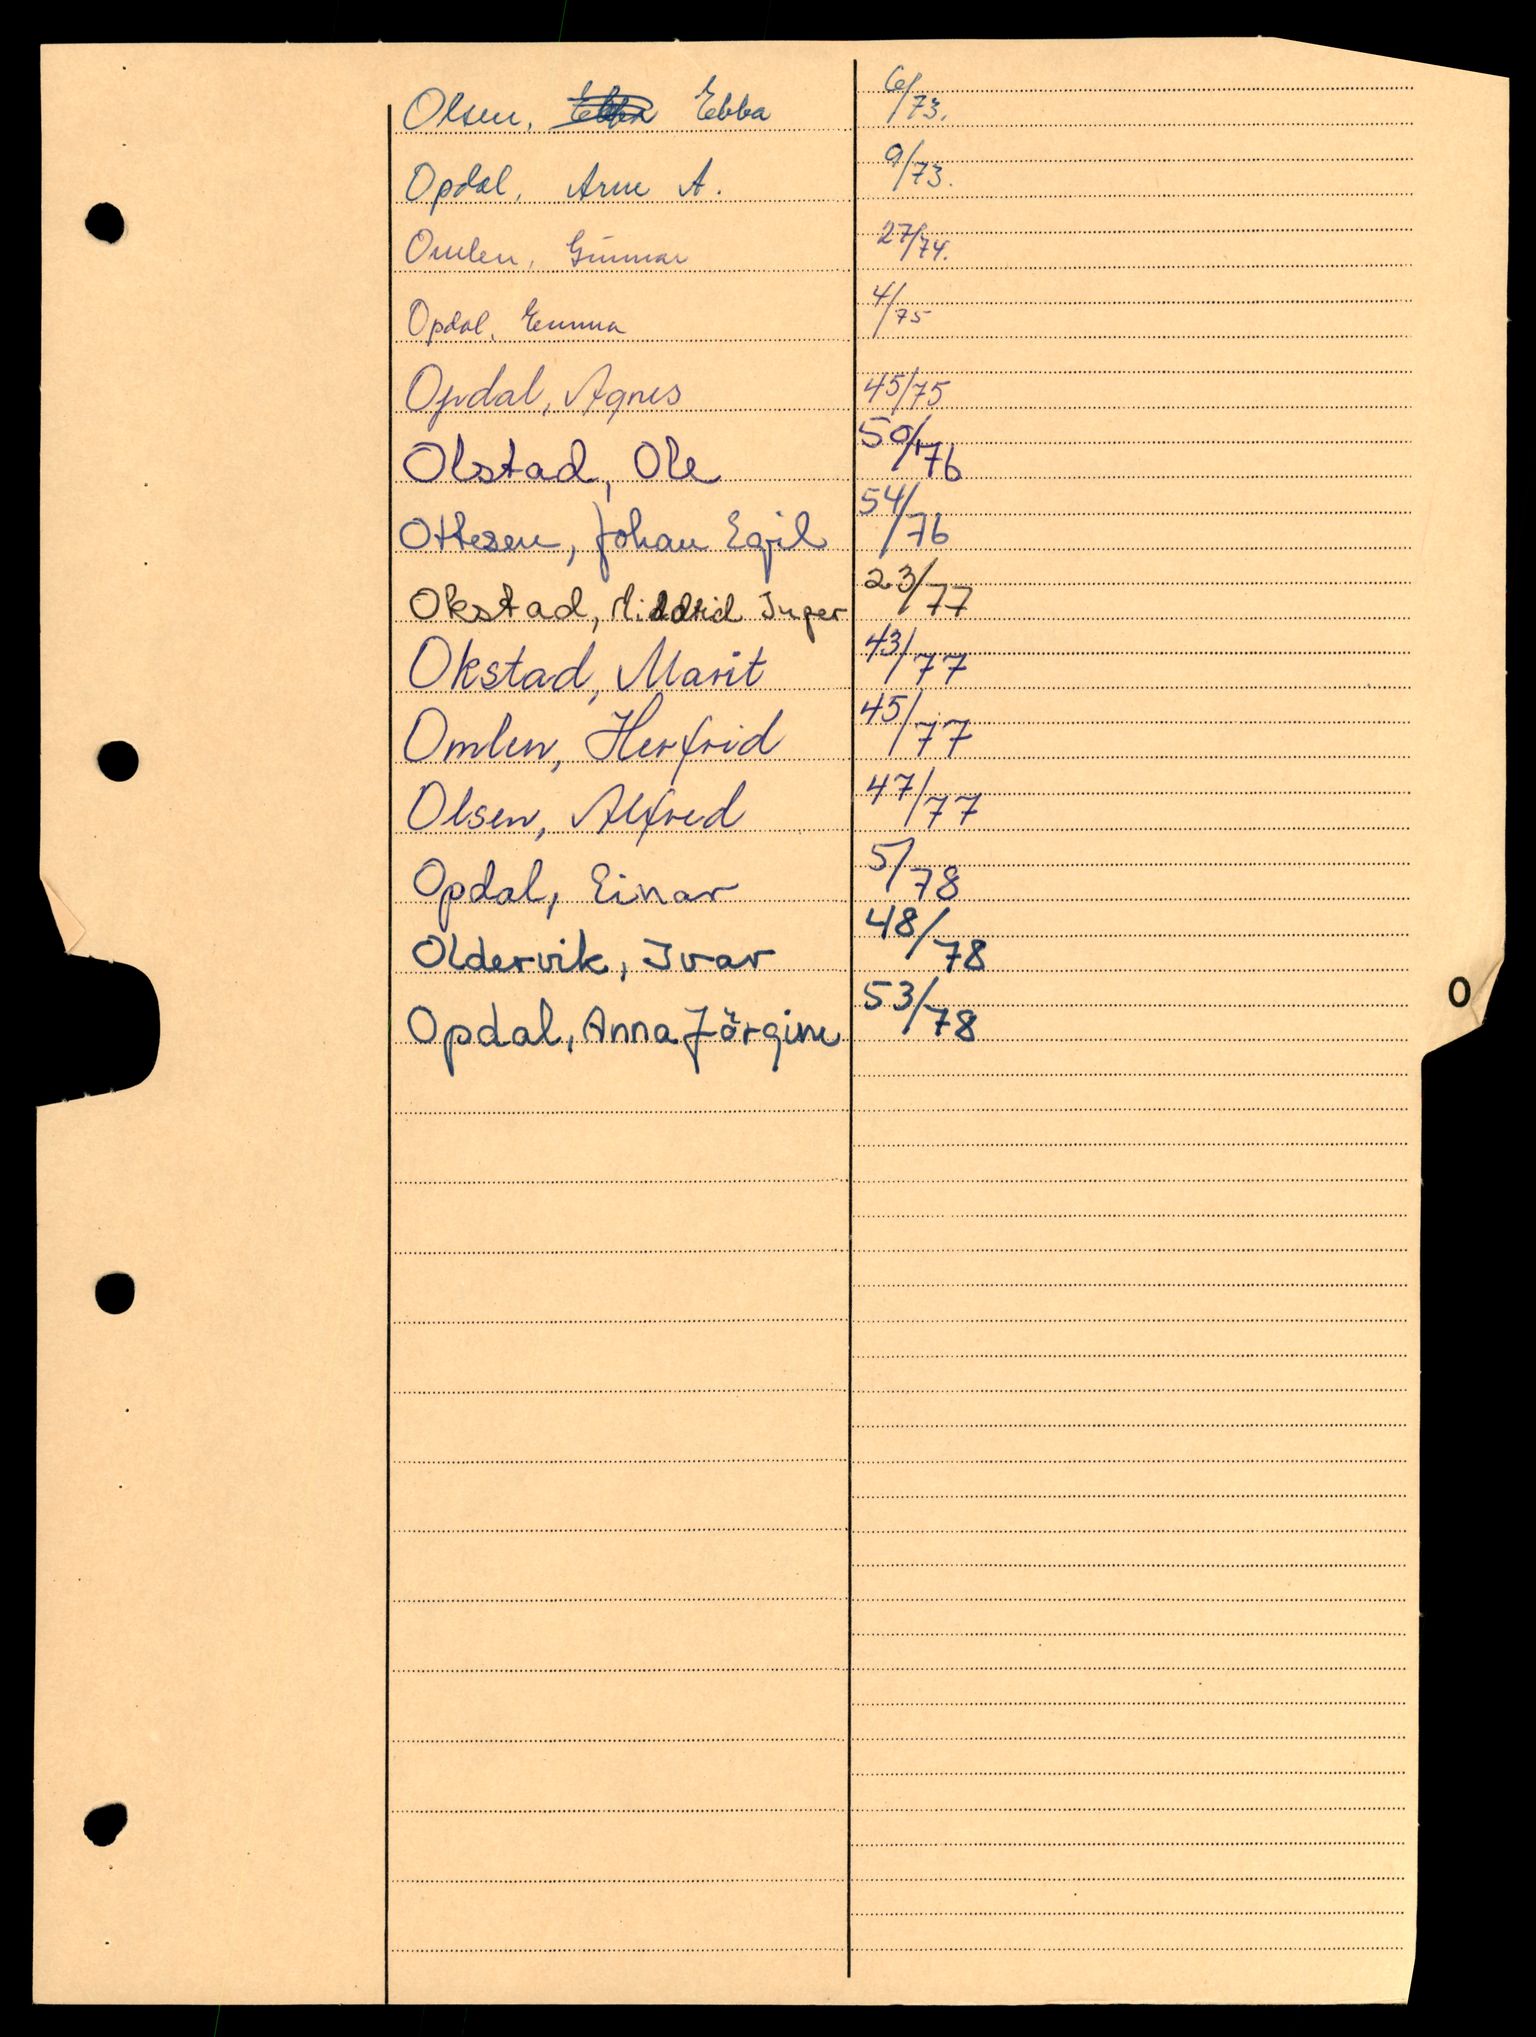 Olsen, Ebba 6/73.
Opdal, Arne A. 9/73.
Omlen, Gunnar 27/74.
Opdal, Emma 4/75
Opdal, Agnes 45/75
Olstad, Ole 50/76
Ottesen, Johan Egil 54/76
Okstad, Inger 23/77
Okstad, Marit 43/77
Omlen, Herfrid 45/77
Olsen, Alfred 47/77
Opdal, Einar 5/78
Oldervik, Ivar 48/78
O
Opdal, Anna Jörgine 53/78